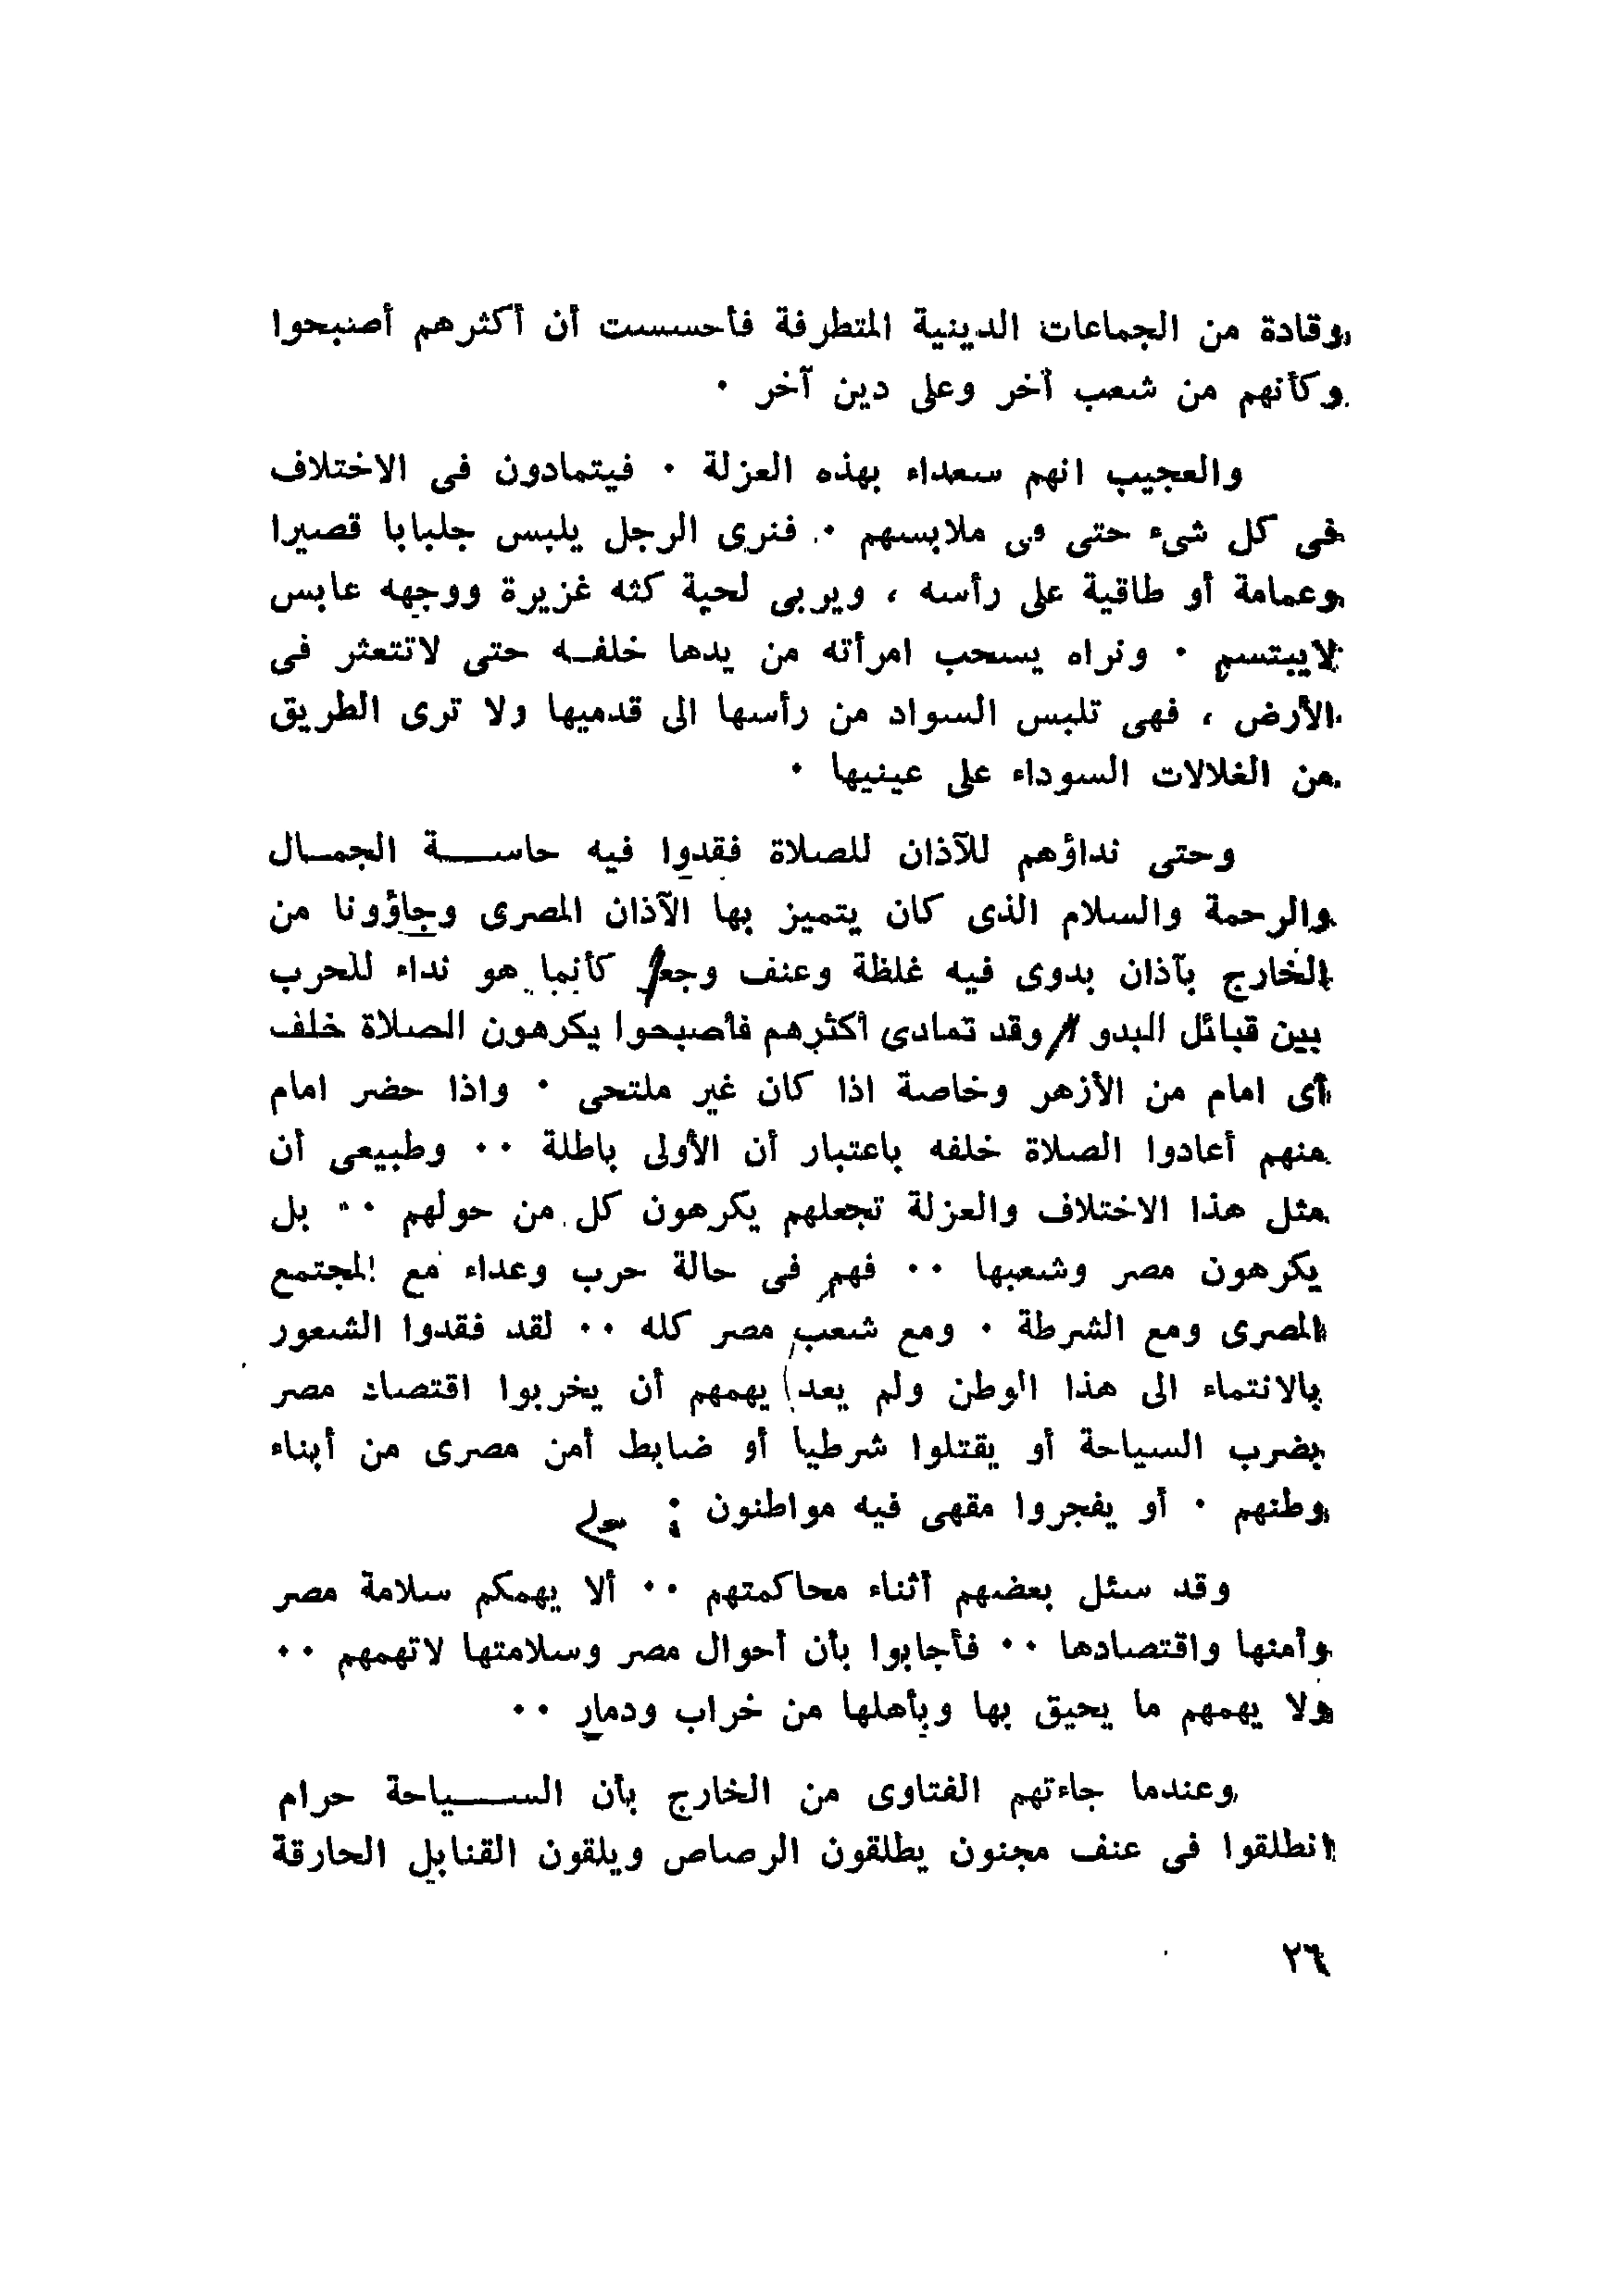 وقادة من الجماعات الدينية المتطرفة فأحسست أن أكثرهم أصبحوا
وكأنهم من شعب آخر وعلى دين آخر ٠
والعجيب انهم سعداء بهذه العزلة ٠ فيتمادون فى الاختلاف
فى كل شىء حتى فى ملابسهم ٠ فنرى الرجل يلبس جلبابا قصيرا
وعمامة أو طاقية على رأسه ، ويربى لحية كثه غزيرة ووجهه عابس
لايبتسم ٠ ونراه يسحب امرأته من يدها خلفه حتى لاتتعثر فى
الأرض ، فهى تلبس السواد من رأسها الى قدميها ولا ترى الطريق
من الغلالات السوداء على عينيها ٠
وحتى نداؤهم للآذان للصلاة فقدوا فيه حاسة الجمال
والرحمة والسلام الذى كان يتميز بها الآذان المصرى وجاؤونا من
الخارج بآذان بدوى فيه غلظة وعنف وجعر كأنما هو نداء للحرب
بين قبائل البدو ٠٠ وقد تمادى أكثرهم فأصبحوا يكرهون الصلاة خلف
أى امام من الأزهر وخاصة اذا كان غير ملتحى ٠ واذا حضر امام
منهم أعادوا الصلاة خلفه باعتبار أن الأولى باطلة ٠٠ وطبيعى أن
مثل هذا الاختلاف والعزلة تجعلهم يكرهون كل من حولهم ٠٠ بل
يكرهون مصر وشعبها ٠٠ فهم فى حالة حرب وعداء مع المجتمع
المصرى ومع الشرطة ٠ ومع شعب مصر كله ٠٠ لقد فقدوا الشعور
بالانتماء الى هذا الوطن ولم يعد يهمهم أن يخربوا اقتصاد مصر
بضرب السياحة أو يقتلوا شرطيا أو ضابط أمن مصرى من أبناء
وطنهم ٠ أو يفجروا مقهى فيه مواطنون :
وقد سئل بعضهم أثناء محاكمتهم ٠٠ ألا يهمكم سلامة مصر
وأمنها واقتصادها ٠٠ فأجابوا بأن أحوال مصر وسلامتها لاتهمهم ٠٠
ولا يهمهم ما يحيق بها وبأهلها من خراب ودمار ٠٠
وعندما جاءتهم الفتاوى من الخارج بأن السياحة حرام
انطلقوا فى عنف مجنون يطلقون الرصاص ويلقون القنابل الحارقة
٢٦